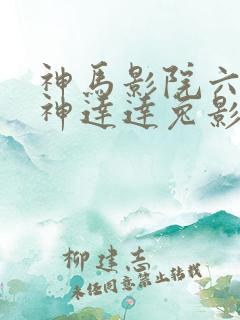 神馬影院六
神達達兔影
柳建志
未经同意禁止转载